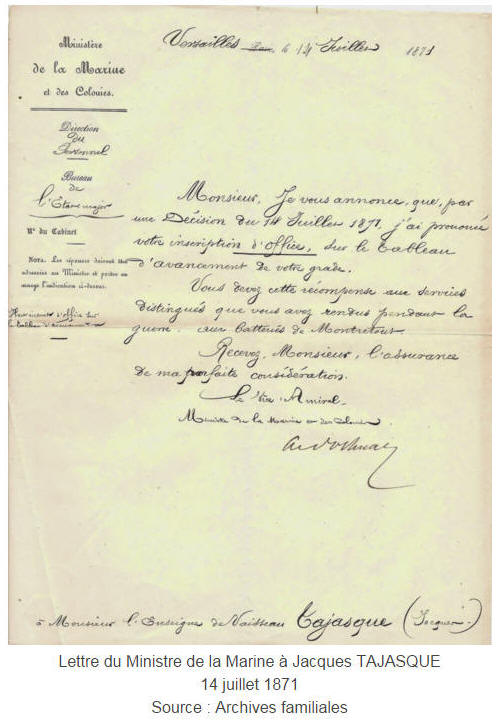 Ministère
de la Marine
et des Colonies.
Direction
du
Personnel
Bureau
de
l'Etat major
N° du Cabinet
NOTA. Les réponses doivent être
adressées au Ministre et porter en
marge l'indication ci-dessus.
d'office sur
le tableau d'avancement
Versailles le 14 Juillet 1871
Monsieur, Je vous annonce, que, par
une Décision du 14 Juillet 1871, j'ai prononcé
votre inscription d'office, sur le tableau
d'avancement de votre grade.
Vous devez cette récompense aux services
distingués que vous avez rendus pendant la
guerre, aux batteries de Montretout.
Recevez, Monsieur, l'assurance
de ma parfaite considération.
Le Vice Amiral
Ministre de la Marine et des Colonies
à Monsieur l'Enseigne de Vaisseau Tajasque (Jacques)
Lettre du Ministre de la Marine à Jacques TAJASQUE
14 juillet 1871
Source : Archives familiales